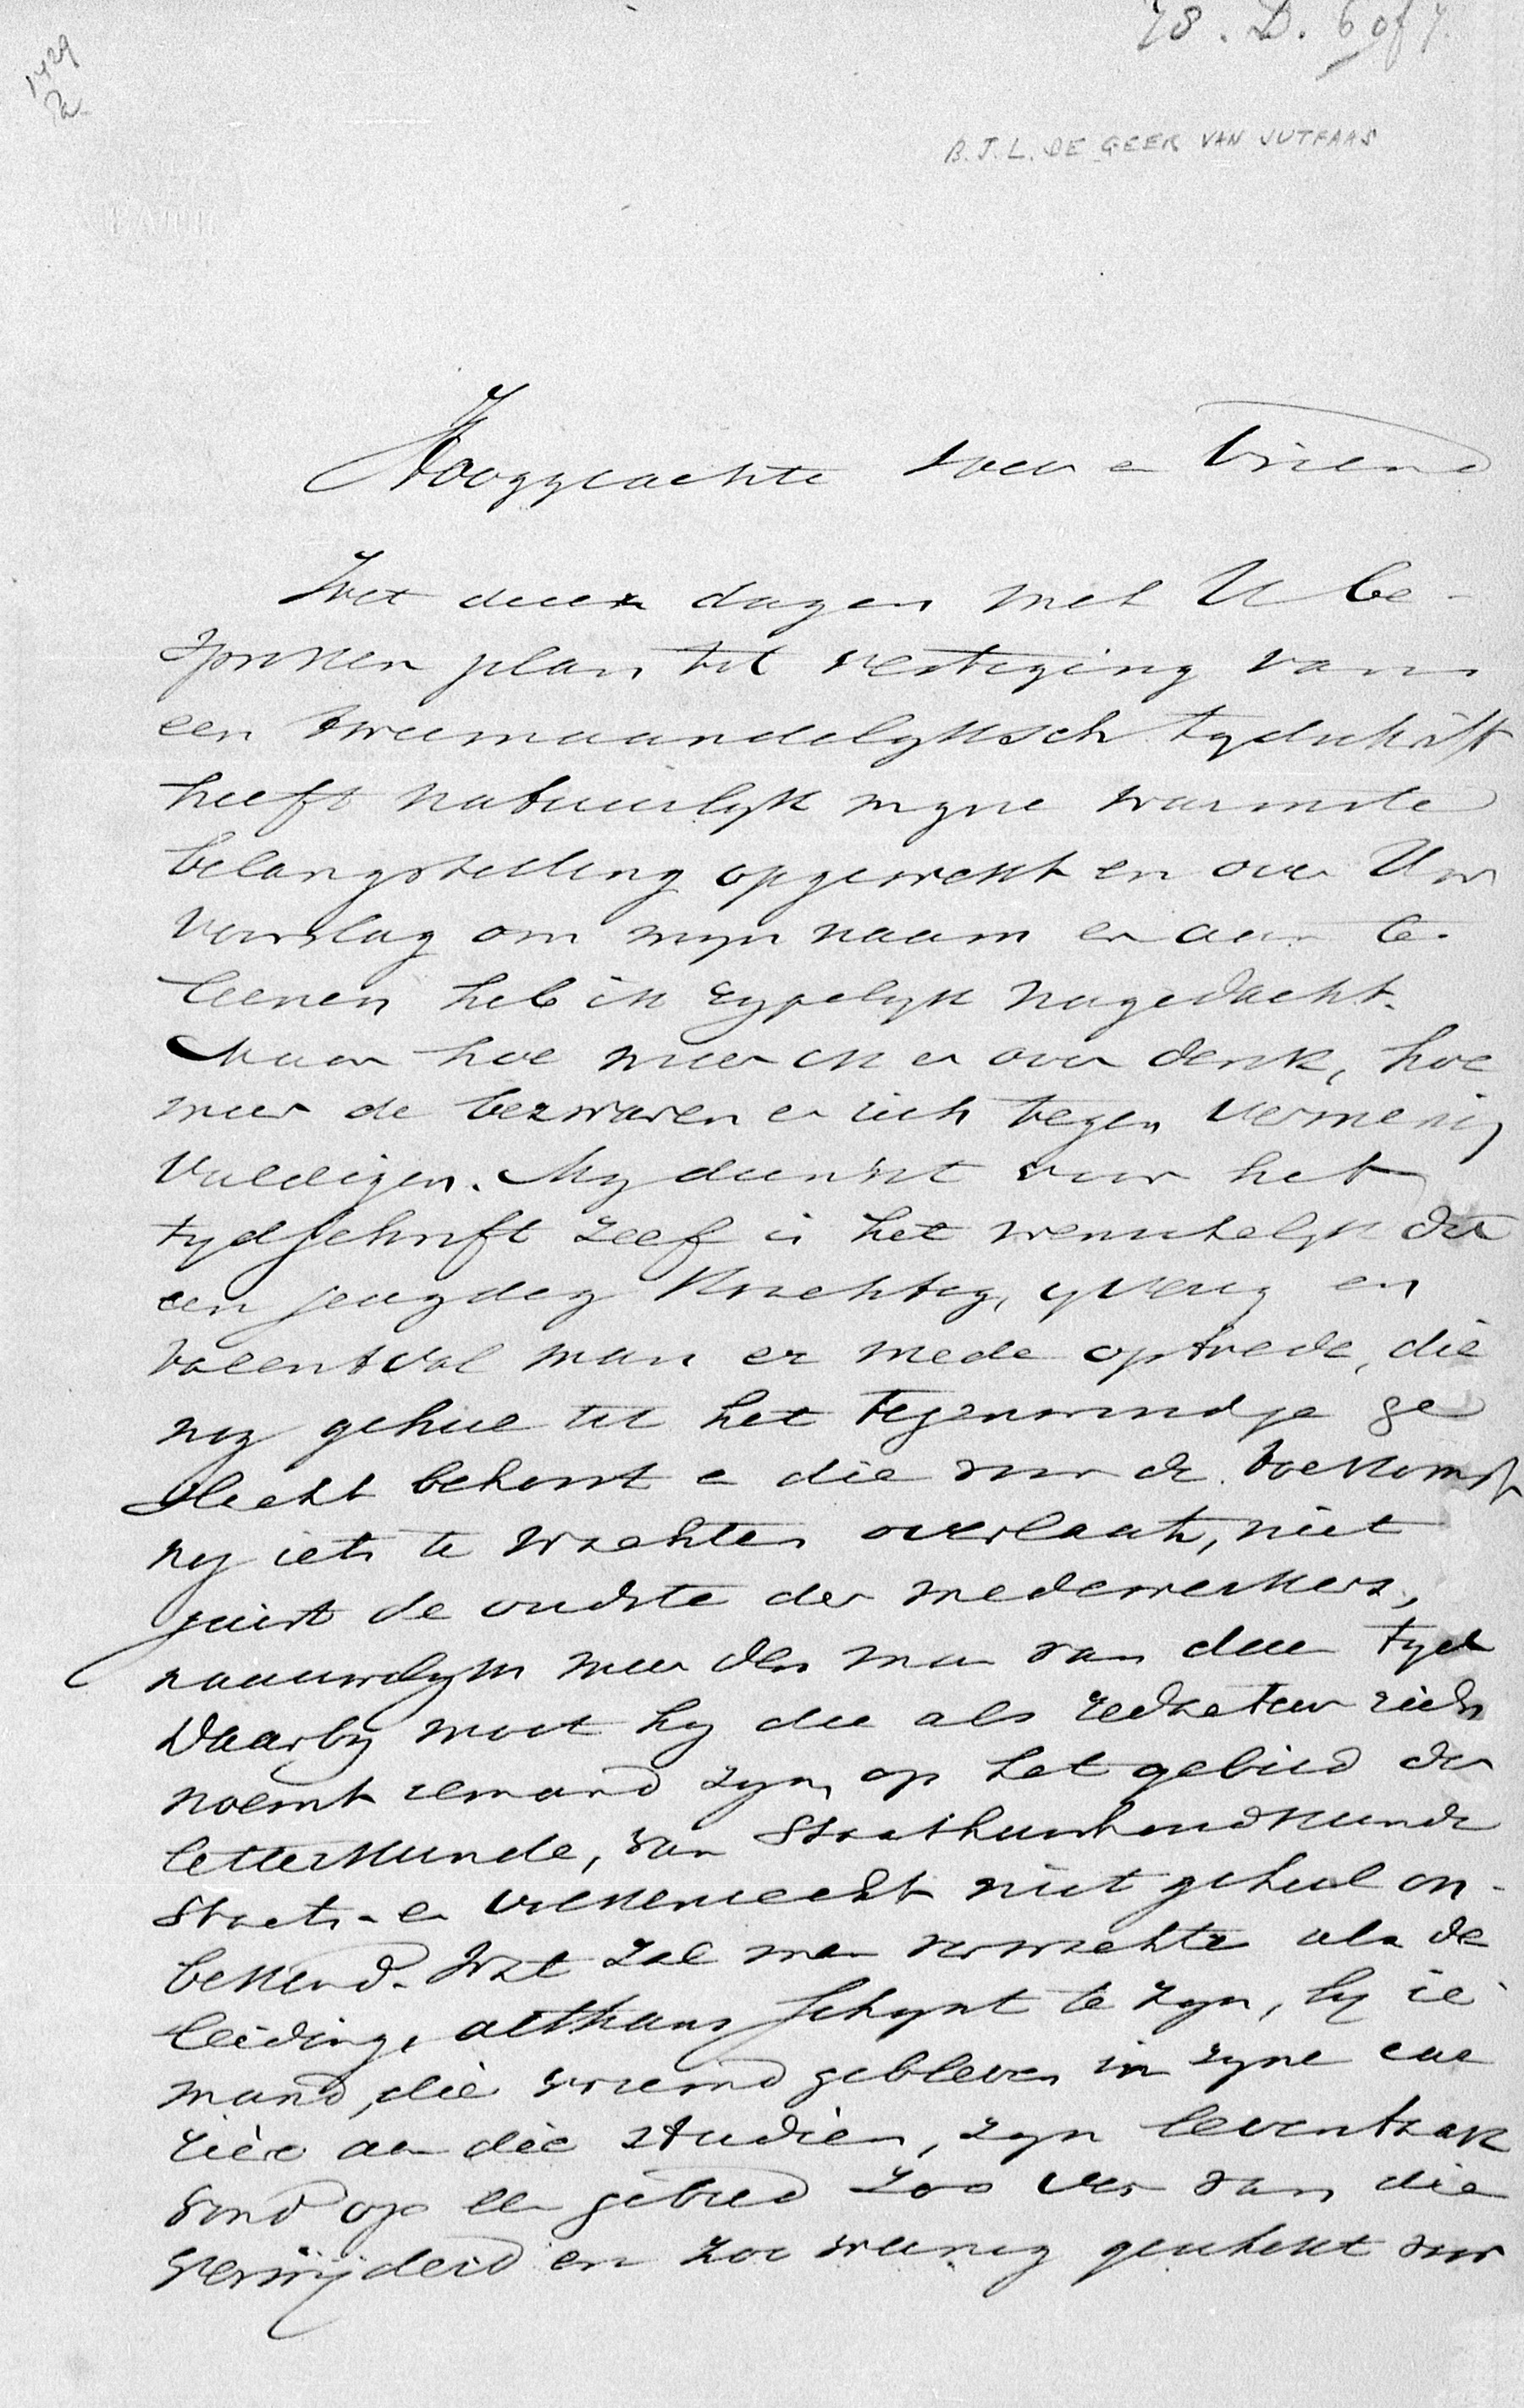 78. D. 6 of 7.
1429
2a
B.J.L. DE GEER VAN JUTFAAS
Hooggeachte heer en Vriend
Het dezer dagen met U be-
sproken plan tot vestiging van
een tweemaandelyksch tydschrift
heeft natuurlyk myne warmste
belangstelling opgewekt en over Uw
voorslag om myn naam er aan te
leenen heb ik rypelyk nagedacht.
Maar hoe meer ik er over denk, hoe
meer de bezwaren er zich tegen vermenig
vuldigen. My dunkt voor het
tydschrift zelf is het wenschelyk dat
een jeugdig krachtig, yverig en
talentvol man er mede optrede, die
nog geheel tot het tegenwoordige ge
slacht behoort en die voor de toekomst
nog iets te wachten overlaat, niet
juist de oudste der medewerkers,
naauwelyks meer den man van dezen tyd
Daarby moet hy die als redacteur zich
noemt iemand zyn, op het gebied der
letterkunde, van Staathuishoudkunde
Staats- en volkenrecht niet geheel on-
bekend. Wat zal men verwachten als de
leiding, althans schynt te zyn, by ie
mand, die vreemd gebleven in zyne car
rière aan die studien, zyn levenstaak
vond op een gebied zoo ver van die
verwyderd en zoo weinig geschikt voor